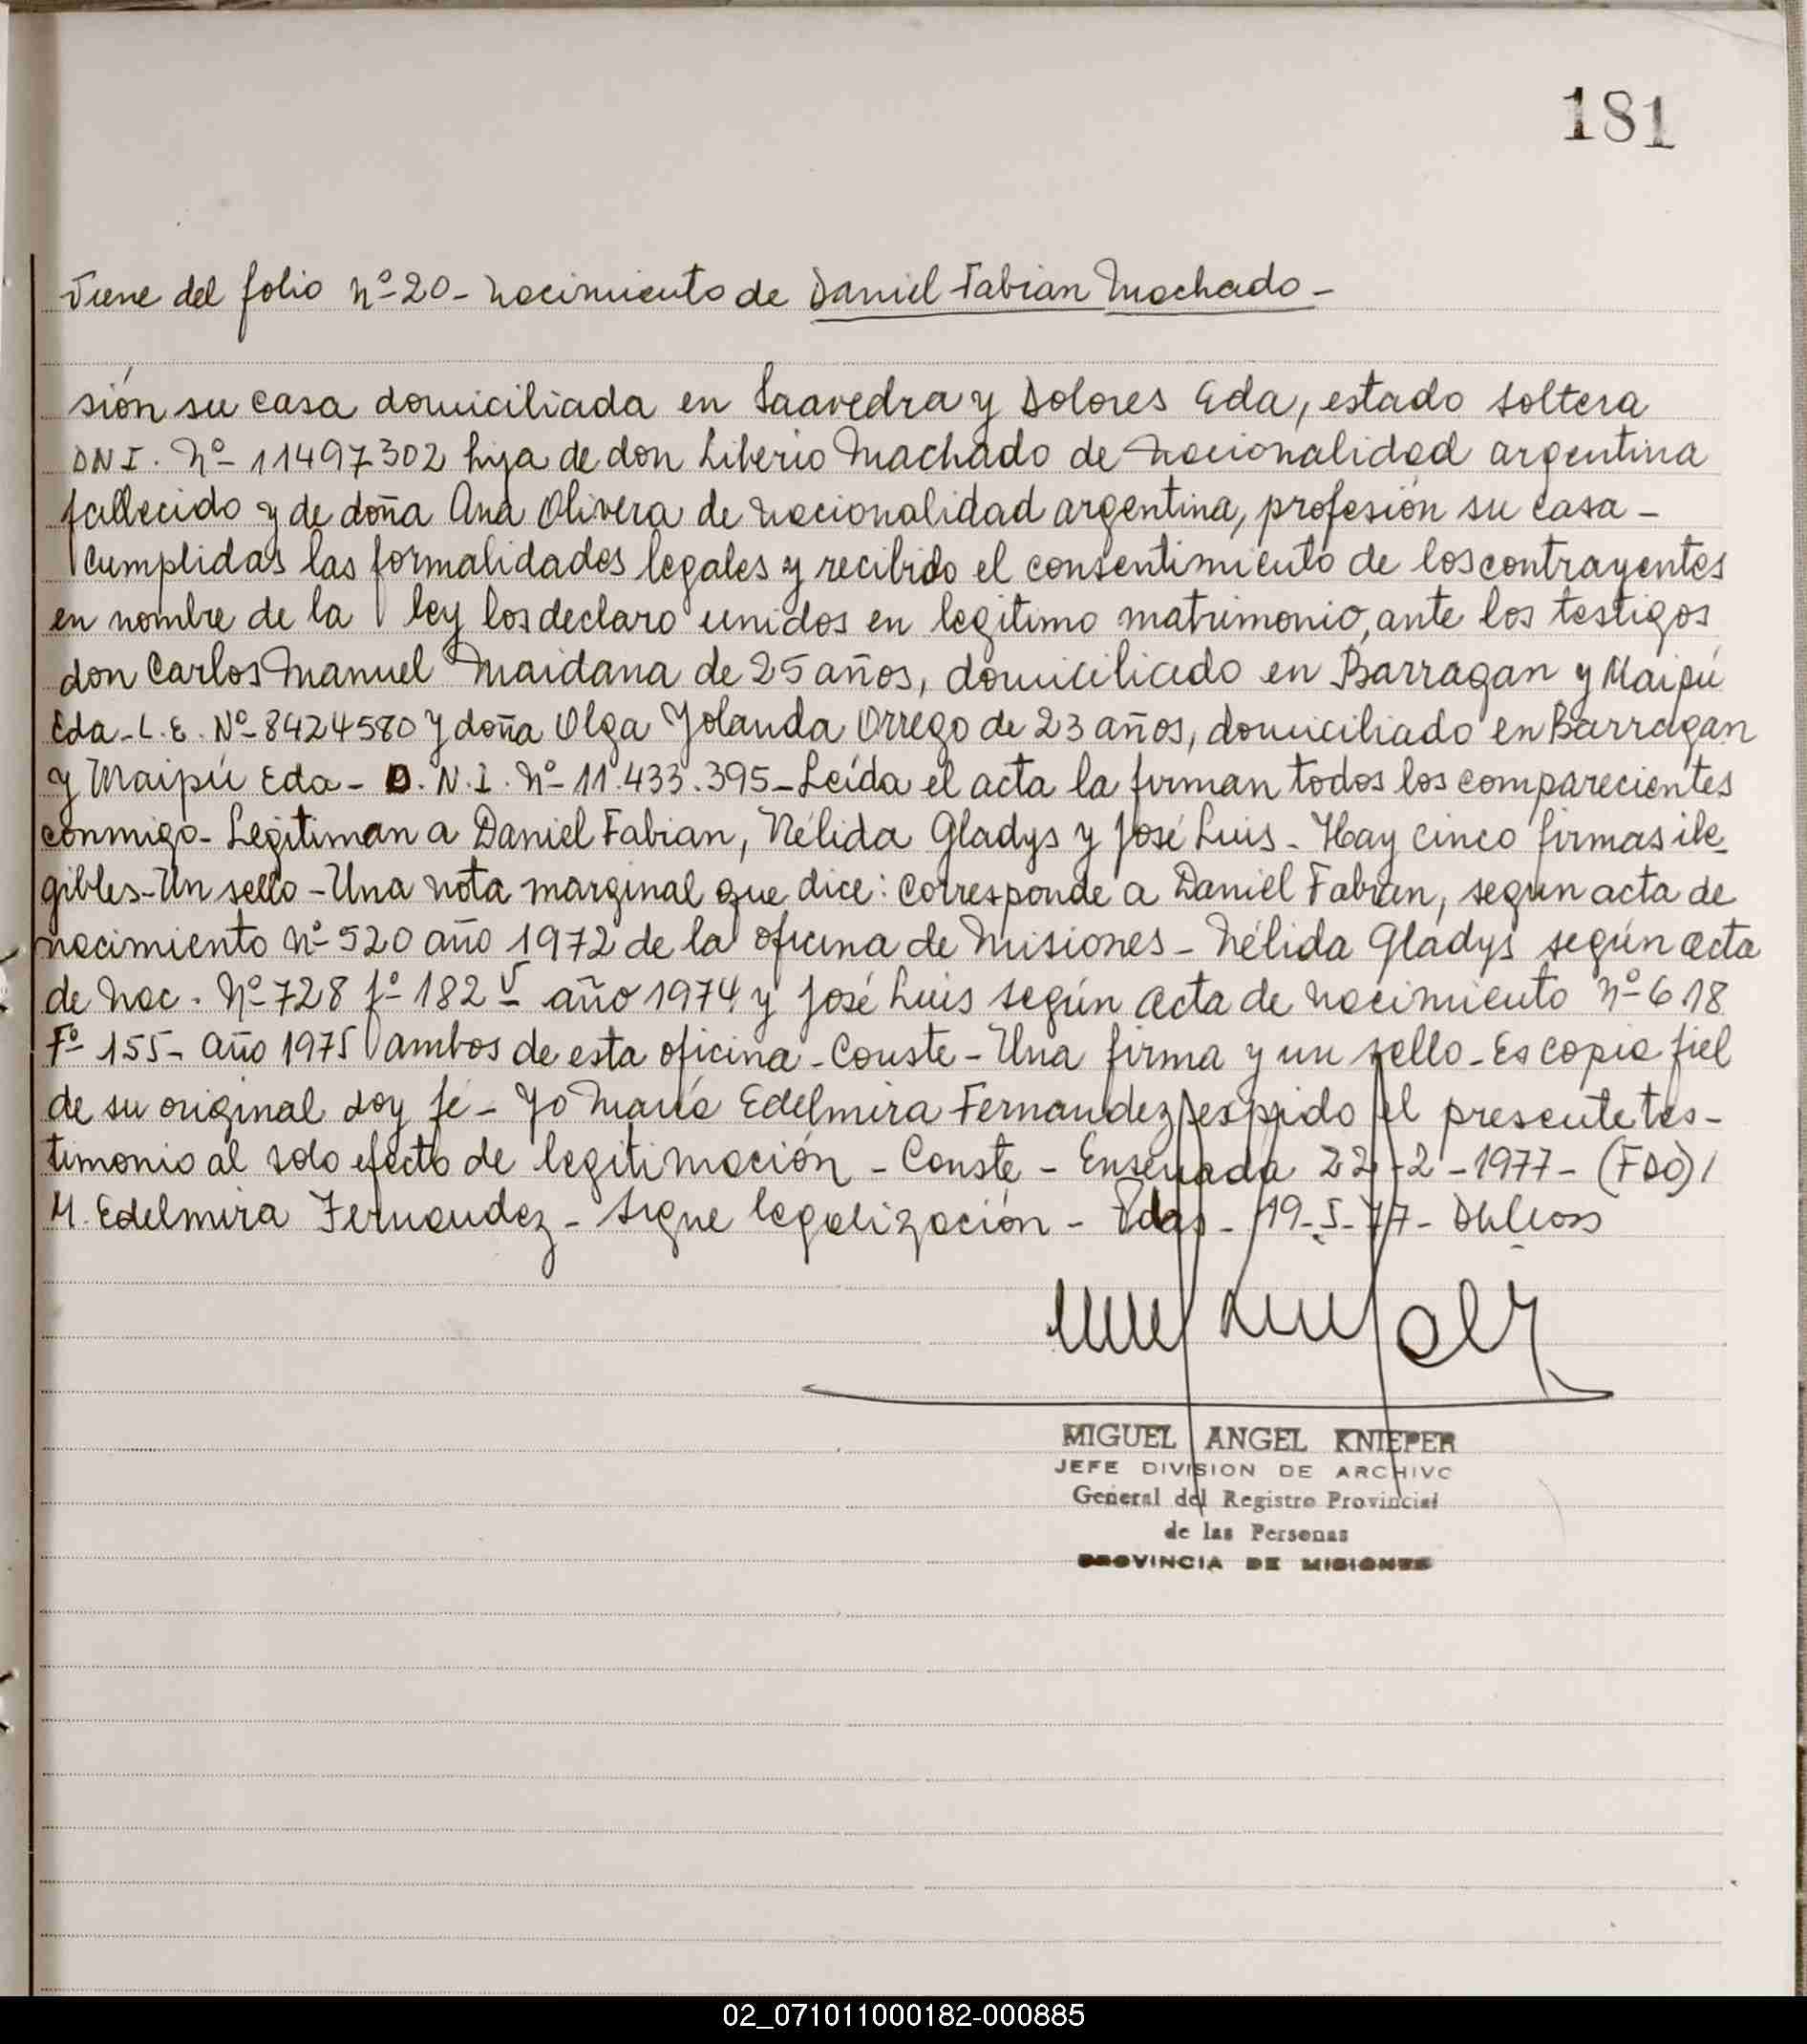 181
Viene del folio Nº 20 - Nacimiento de Daniel Fabian Machado -
sión su casa domiciliada en Saavedra y Dolores Eda, estado soltera
DNI. Nº - 11497302 hija de don Liberio Machado de nacionalidad argentina
fallecido y de doña Ana Olivera de nacionalidad argentina, profesión su casa -
Cumplidas las formalidades legales y recibido el consentimiento de los contrayentes
en nombre de la ley los declaro unidos en legitimo matrimonio, ante los testigos
don Carlos Manuel Maidana de 25 años, domiciliado en Barragan y Maipú
Eda - L.E. Nº - 8424580 y doña Olga Yolanda Orrego de 23 años, domiciliado en Barragan
y Maipú Eda - D.N.I. Nº - 11.433.395 - Leída el acta la firman todos los comparecientes
conmigo - Legitiman a Daniel Fabian, Nélida Gladys y José Luis - Hay cinco firmas ile-
gibles - Un sello - Una nota marginal que dice: Corresponde a Daniel Fabian, segun acta de
nacimiento Nº 520 año 1972 de la oficina de Misiones - Nélida Gladys según acta
de Nac. Nº 728 fº 182 v año 1974 y José Luis según acta de nacimiento Nº 618
Fº 155 - año 1975 ambos de esta oficina - Conste - Una firma y un sello - Es copia fiel
de su original doy fé - Yo María Edelmira Fernandez expido el presente tes-
timonio al solo efecto de legitimación - Conste - Ensenada 22-2-1977 - (FDO) /
M. Edelmira Fernandez - Sigue legalización - Pdas - 19-5-77 -
MIGUEL ANGEL KNIEPER
JEFE DIVISION DE ARCHIVO
General del Registro Provincial
de las Personas
PROVINCIA DE MISIONES
02_071011000182-000885